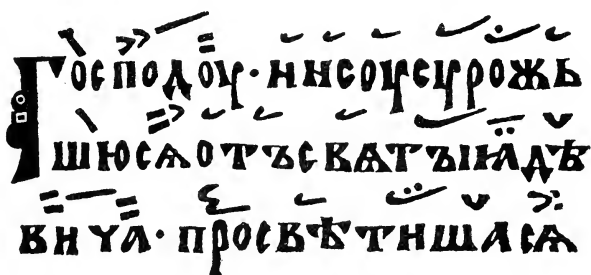 Господоу·иисоусурожь
шюсѧотъсвѧтъіꙗдѣ
вича·просвѣтишасѧ